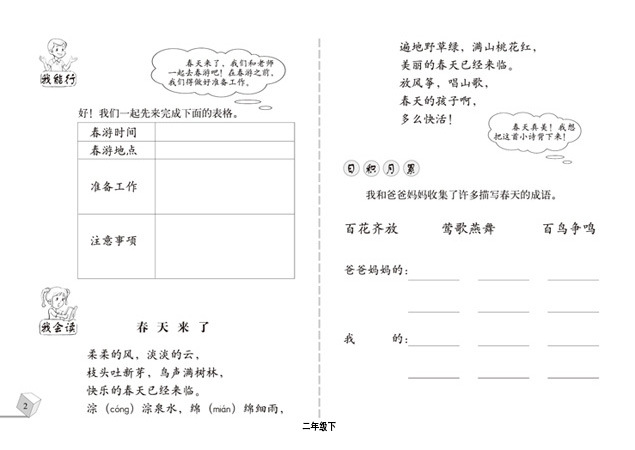 我能行
春天来了，我们和老师
一起去春游吧！在春游之前，
我们得做好准备工作。
好！我们一起先来完成下面的表格。
春游时间
春游地点
准备工作
注意事项
我会读
春天来了
柔柔的风，淡淡的云，
枝头吐新芽，鸟声满树林，
快乐的春天已经来临。
淙（cóng）淙泉水，绵（mián）绵细雨，
2
遍地野草绿，满山桃花红，
美丽的春天已经来临。
放风筝，唱山歌，
春天的孩子啊，
多么快活！
春天真美！我想
把这首小诗背下来！
日积月累
我和爸爸妈妈收集了许多描写春天的成语。
百花齐放 莺歌燕舞 百鸟争鸣
爸爸妈妈的：
我 的：
二年级下